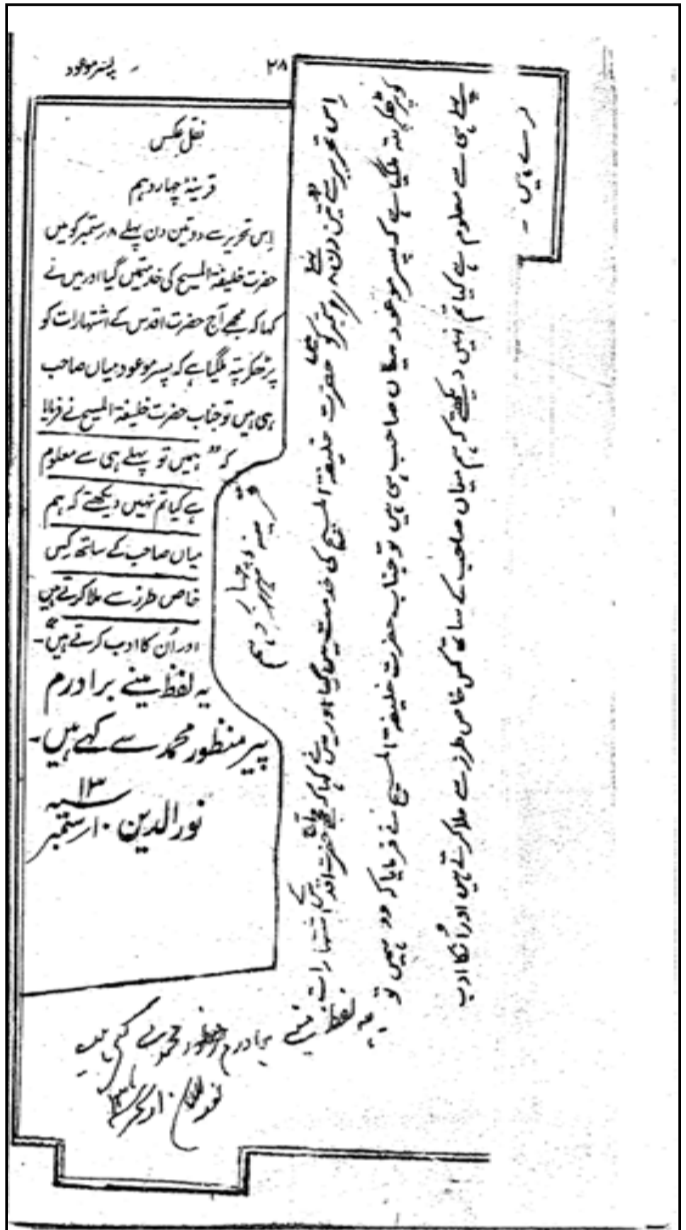 پسر موعود
۲۸
نقل عکس
قرینہٴ چہاردہم
اِس تحریر سے دو تین دن پہلے ۸ ستمبر کو میں
حضرت خلیفۃ المسیح کی خدمت میں گیا اور میں نے
کہا کہ مجھے آج حضرت اقدس کے اشتہارات کو
پڑھکر پتہ مل گیا ہے کہ پسر موعود میاں صاحب
ہی ہیں تو جناب حضرت خلیفۃ المسیح نے فرمایا
کہ "ہمیں تو پہلے ہی سے معلوم
ہے کیا تم نہیں دیکھتے کہ ہم
میاں صاحب کے ساتھ کس
خاص طرز سے ملا کرتے ہیں
اور اُن کا ادب کرتے ہیں"۔
یہ لفظ مینے برادرم
پیر منظور محمد سے کہے ہیں۔
نورالدین ۱۰ ستمبر ۱۳
قرینہ چہاردہم
اِس تحریر سے دو تین دن پہلے ۸ ستمبر کو حضرت خلیفۃ المسیح کی خدمت میں گیا اور میں نے کہا کہ مجھے آج حضرت اقدس کے اشتہارات
کو پڑھکر پتہ مل گیا ہے کہ پسر موعود میاں صاحب ہی ہیں تو جناب حضرت خلیفۃ المسیح نے فرمایا کہ ہمیں تو
پہلے ہی سے معلوم ہے کیا تم نہیں دیکھتے کہ ہم میاں صاحب کے ساتھ کس خاص طرز سے ملا کرتے ہیں اور اُنکا ادب
کرتے ہیں۔
یہ لفظ مینے برادرم منظور محمد سے کہے ہیں
نورالدین ۱۰ ستمبر ۱۳